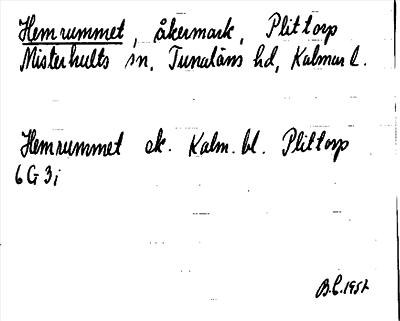 Hemrummet, åkermark, Plittorp
Misterhults sn, Tunaläns hd, Kalmar l.
Hemrummet ek. Kalm. bl. Plittorp
6G 3i
B.E. 1952